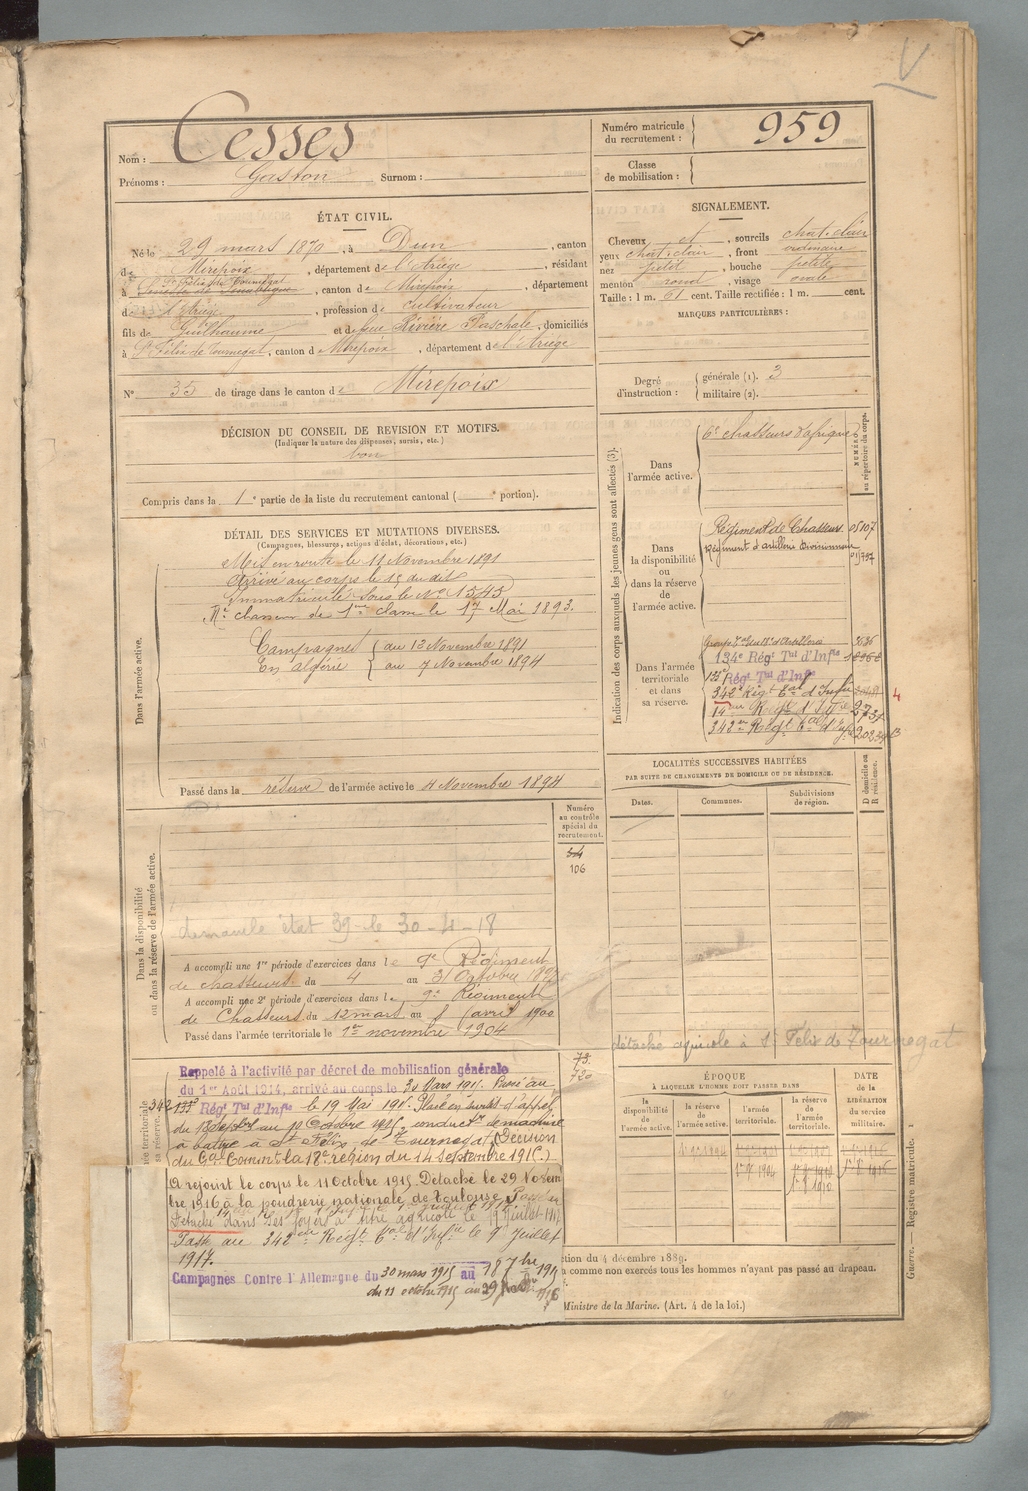 V
Nom : Cesses
Prénoms : Gaston Surnom :
Numéro matricule du recrutement : 959
Classe de mobilisation :
ÉTAT CIVIL.
Né le 29 mars 1870, à Dun, canton
de Mirepoix, département de l'Ariège, résidant
St Félix de Tournegat
à, canton de Mirepoix, département
d l'Ariège, profession de cultivateur
fils de Guilhaume et de feue Rivière Paschale, domiciliés
à St Félix de Tournegat, canton de Mirepoix, département de l'Ariège
No 35 de tirage dans le canton de Mirepoix
SIGNALEMENT.
Cheveux et, sourcils chat. clair
yeux chat. clair, front ordinaire
nez petit, bouche petite
menton rond, visage ovale
Taille : 1 m. 61 cent. Taille rectifiée : 1 m. cent.
MARQUES PARTICULIÈRES :
Degré d'instruction : générale (1). 3
militaire (2).
DÉCISION DU CONSEIL DE REVISION ET MOTIFS.
(Indiquer la nature des dispenses, sursis, etc.)
bon
Compris dans la 1e partie de la liste du recrutement cantonal ( e portion).
DÉTAIL DES SERVICES ET MUTATIONS DIVERSES.
(Campagnes, blessures, actions d'éclat, décorations, etc.)
Dans l'armée active.
Mis en route le 11 Novembre 1891
Arrivé au corps le 13 du dit
Immatriculé sous le No 1545
chasseur de 1ère classe le 17 Mai 1893.
Campagnes au 13 Novembre 1891
En algérie au 7 Novembre 1894
Passé dans la réserve de l'armée active le 4 Novembre 1894
Indication des corps auxquels les jeunes gens sont affectés (3).
NUMÉRO au répertoire du corps.
Dans l'armée active.
6e chasseurs d'afrique
Dans la disponibilité ou dans la réserve de l'armée active.
Régiment de Chasseurs. 05107
Régiment d'artillerie divisionnaire
Dans l'armée territoriale et dans sa réserve.
134e Régt Tal d'Infie
Régt Tal d'Infie
342e Régt Tal d'Infie
14 Régt d'Infie
342e Régt Tal d'Infie
LOCALITÉS SUCCESSIVES HABITÉES
PAR SUITE DE CHANGEMENTS DE DOMICILE OU DE RÉSIDENCE.
Dates. Communes. Subdivisions de région. D domicile ou R résidence.
Dans la disponibilité ou dans la réserve de l'armée active.
Numéro au contrôle spécial du recrutement.
106
état 39 le 30-4-18
A accompli une 1re période d'exercices dans le 9e Régiment
de chasseurs du 4 au 31 Octobre
A accompli une 2e période d'exercices dans le 9e Régiment
de Chasseurs du 12 mars au 8 avril 1900
Passé dans l'armée territoriale le 1er novembre 1904
détaché agricole à St Félix de Tournegat
73.
720
Rappelé à l'activité par décret de mobilisation générale
du 1er Août 1914, arrivé au corps le 30 Mars 1915. Passé au
Régt Tal d'Infie le 19 Mai 1915. Placé en sursis d'appel
du 18 Septbre au 10 Octobre 1915, conductr de machine
à battre à St Félix de Tournegat (Décision
du Gal Commt la 18e région du 14 Septembre 1915.)
A rejoint le corps le 11 Octobre 1915. Détaché le 29 Novem
bre 1916 à la poudrerie nationale de Toulouse
Détaché dans ses foyers à titre agricole le Juillet 1917
Passé au 342e Régt Tal d'Infie le 9 Juillet
1917.
Campagnes Contre l'Allemagne du 30 mars 1915 au 18 7bre 1915
du 11 octobre 1915 au 29 1916
ÉPOQUE
À LAQUELLE L'HOMME DOIT PASSER DANS
la disponibilité de l'armée active.
la réserve de l'armée active.
l'armée territoriale.
la réserve de l'armée territoriale.
DATE de la LIBÉRATION du service militaire.
ction du 4 décembre 1889.
a comme non exercés tous les hommes n'ayant pas passé au drapeau.
Ministre de la Marine. (Art. 4 de la loi.)
Guerre. — Registre matricule. 1